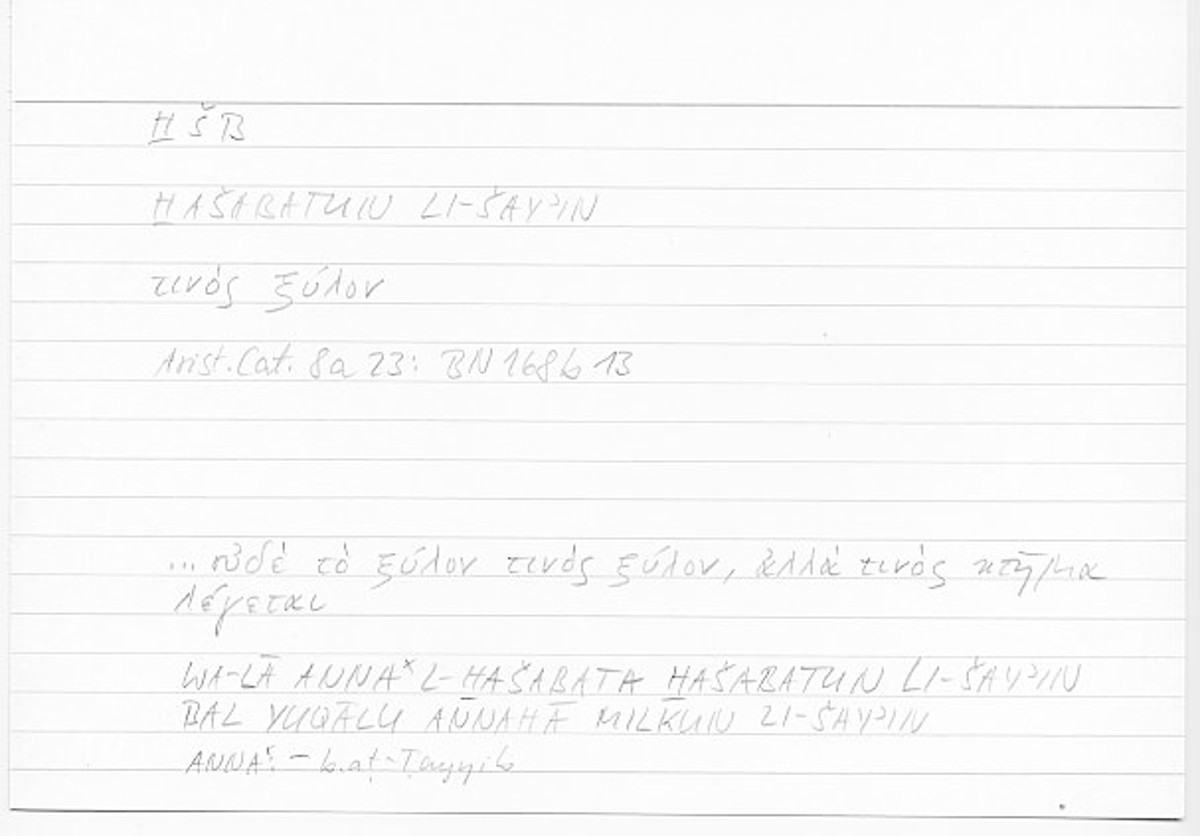 H̱ŠB
H̱AŠABATUN LI-ŠAYʾIN
τινός ξύλον
Arist. Cat. 8a 23: BN 168b 13
... οὐδὲ τὸ ξύλον τινὸς ξύλον, ἀλλὰ τινὸς κτῆμα
λέγεται
WA-LĀ ANNAˣ L-H̱AŠABATA H̱AŠABATUN LI-ŠAYʾIN
BAL YUQĀLU ANNAHĀ MILKUN LI-ŠAYʾIN
ANNAˣ: – b. aṭ-Ṭayyib